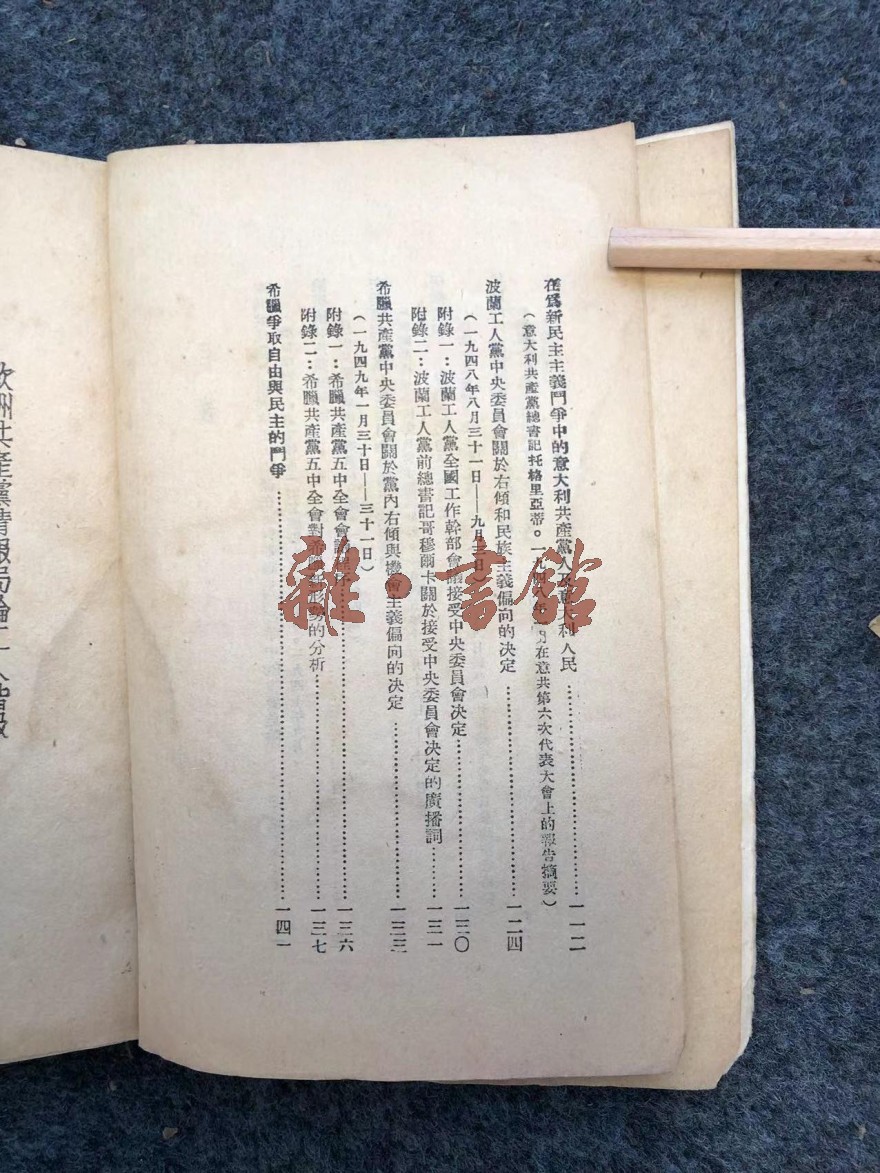 在爲新民主主義鬥爭中的意大利共產黨人及意大利人民……一一二
(意大利共產黨總書記托格里亞蒂。一九四八年一月在意共第六次代表大會上的報告摘要)
波蘭工人黨中央委員會關於右傾和民族主義偏向的决定……一二四
(一九四八年八月三十一日——九月三日)
附錄一:波蘭工人黨全國工作幹部會議接受中央委員會决定……一三〇
附錄二:波蘭工人黨前總書記哥穆爾卡關於接受中央委員會决定的廣播詞……一三一
希臘共產黨中央委員會關於黨內右傾與機會主義偏向的决定……一三三
(一九四九年一月三十日——三十一日)
附錄一:希臘共產黨五中全會會議……一三六
附錄二:希臘共產黨五中全會對希臘新形勢的分析……一三七
希臘爭取自由與民主的鬥爭……一四一
歐洲共產黨情報局論
雜·書館